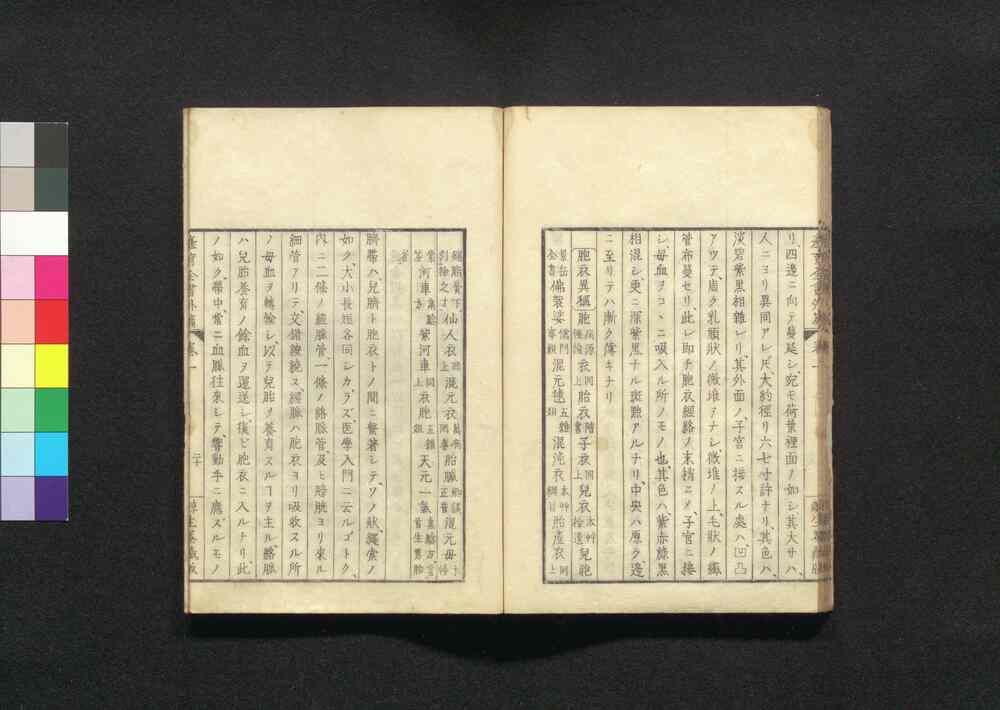 リ四邉ニ向テ蔓延シ宛モ荷葉裡面ノ如シ其大サハ
人ニヨリ異同アレ𪜈大約徑リ六七寸許ナリ其色ハ
淡碧紫黒相雜レリ其外面ノ子宮ニ接スル處ハ凹凸
アツテ周ク乳頭狀ノ微堆ヲナシ微堆ノ上毛狀ノ纖
管布蔓セリ此レ即チ胞衣經絡ノ末梢ニメ子宮ニ接
シ毎血ヲコヽニ吸入ル所ノモノ也其色ハ紫赤緑黒
相混シ更ニ深紫黒ナル斑㸃アルナリ中央ハ厚ク邉
ニ至リテハ漸ク薄キナリ
胞衣異稱 胞 病源 衣 同上 胎衣 子衣 同上 兒衣 本艸拾遺 兒胞
景岳全書 佛袈裟 儒門事親 混元毬 五雜俎 混沌衣 本艸綱目 胎衣 同上
仙人衣 同上 混元衣 胎脈 混元母
紫河車 紫河車 同上 衣胞 五雜俎 天元一氣
臍帶ハ兒臍ト胞衣トノ間ニ繫著シテソノ狀繩索ノ
如ク大小長短各同シカラズ医學入門ニ云ルゴトク
内ニ二條ノ經脈管一條ノ絡脈管及ヒ膀胱ヨリ來ル
細管アリテ交錯綾繞ス經脈ハ胞衣ヨリ吸收スル所
ノ毎血ヲ轉輸シ以テ兒胎ヲ養育スルヿヲ主ル絡脈
ハ兒胎養育ノ餘血ヲ還送シ復ヒ胞衣ニ入ルナリ此
ノ如ク帶中常ニ血脈往來シテ響動手ニ應ズルモノ
産育全書外篇 卷一 二十